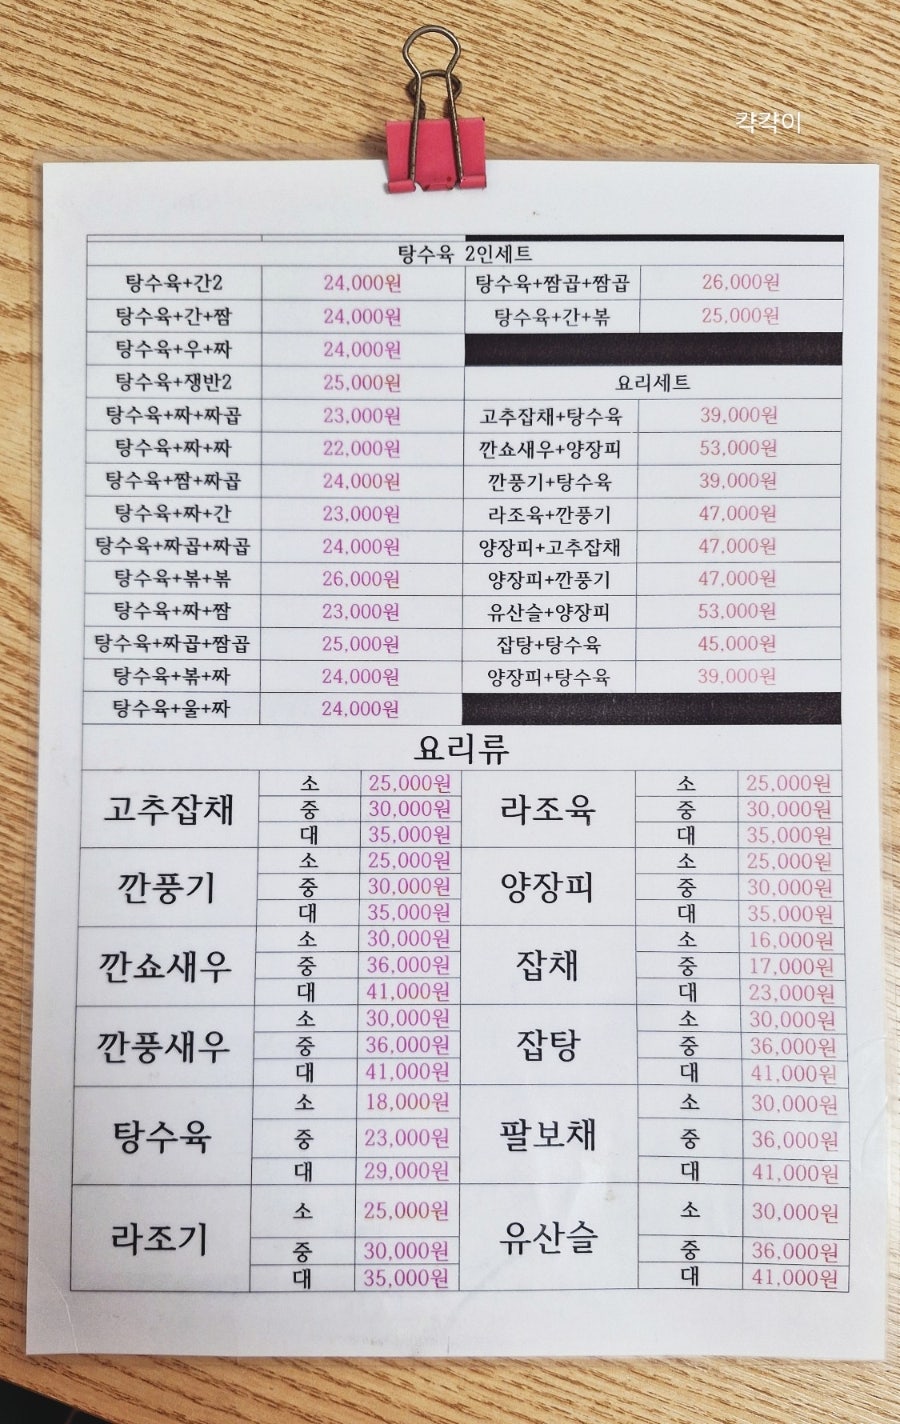 캭캭이
탕수육 2인세트
탕수육+간2 24,000원 탕수육+짬곱+짬곱 26,000원
탕수육+간+짬 24,000원 탕수육+간+볶 25,000원
탕수육+우+짜 24,000원
탕수육+쟁반2 25,000원 요리세트
탕수육+짜+짜곱 23,000원 고추잡채+탕수육 39,000원
탕수육+짜+짜 22,000원 깐쇼새우+양장피 53,000원
탕수육+짬+짜곱 24,000원 깐풍기+탕수육 39,000원
탕수육+짜+간 23,000원 라조육+깐풍기 47,000원
탕수육+짜곱+짜곱 24,000원 양장피+고추잡채 47,000원
탕수육+볶+볶 26,000원 양장피+깐풍기 47,000원
탕수육+짜+짬 23,000원 유산슬+양장피 53,000원
탕수육+짜곱+짬곱 25,000원 잡탕+탕수육 45,000원
탕수육+볶+짜 24,000원 양장피+탕수육 39,000원
탕수육+울+짜 24,000원
요리류
고추잡채
소 25,000원
중 30,000원
대 35,000원
라조육
소 25,000원
중 30,000원
대 35,000원
깐풍기
소 25,000원
중 30,000원
대 35,000원
양장피
소 25,000원
중 30,000원
대 35,000원
깐쇼새우
소 30,000원
중 36,000원
대 41,000원
잡채
소 16,000원
중 17,000원
대 23,000원
깐풍새우
소 30,000원
중 36,000원
대 41,000원
잡탕
소 30,000원
중 36,000원
대 41,000원
탕수육
소 18,000원
중 23,000원
대 29,000원
팔보채
소 30,000원
중 36,000원
대 41,000원
라조기
소 25,000원
중 30,000원
대 35,000원
유산슬
소 30,000원
중 36,000원
대 41,000원